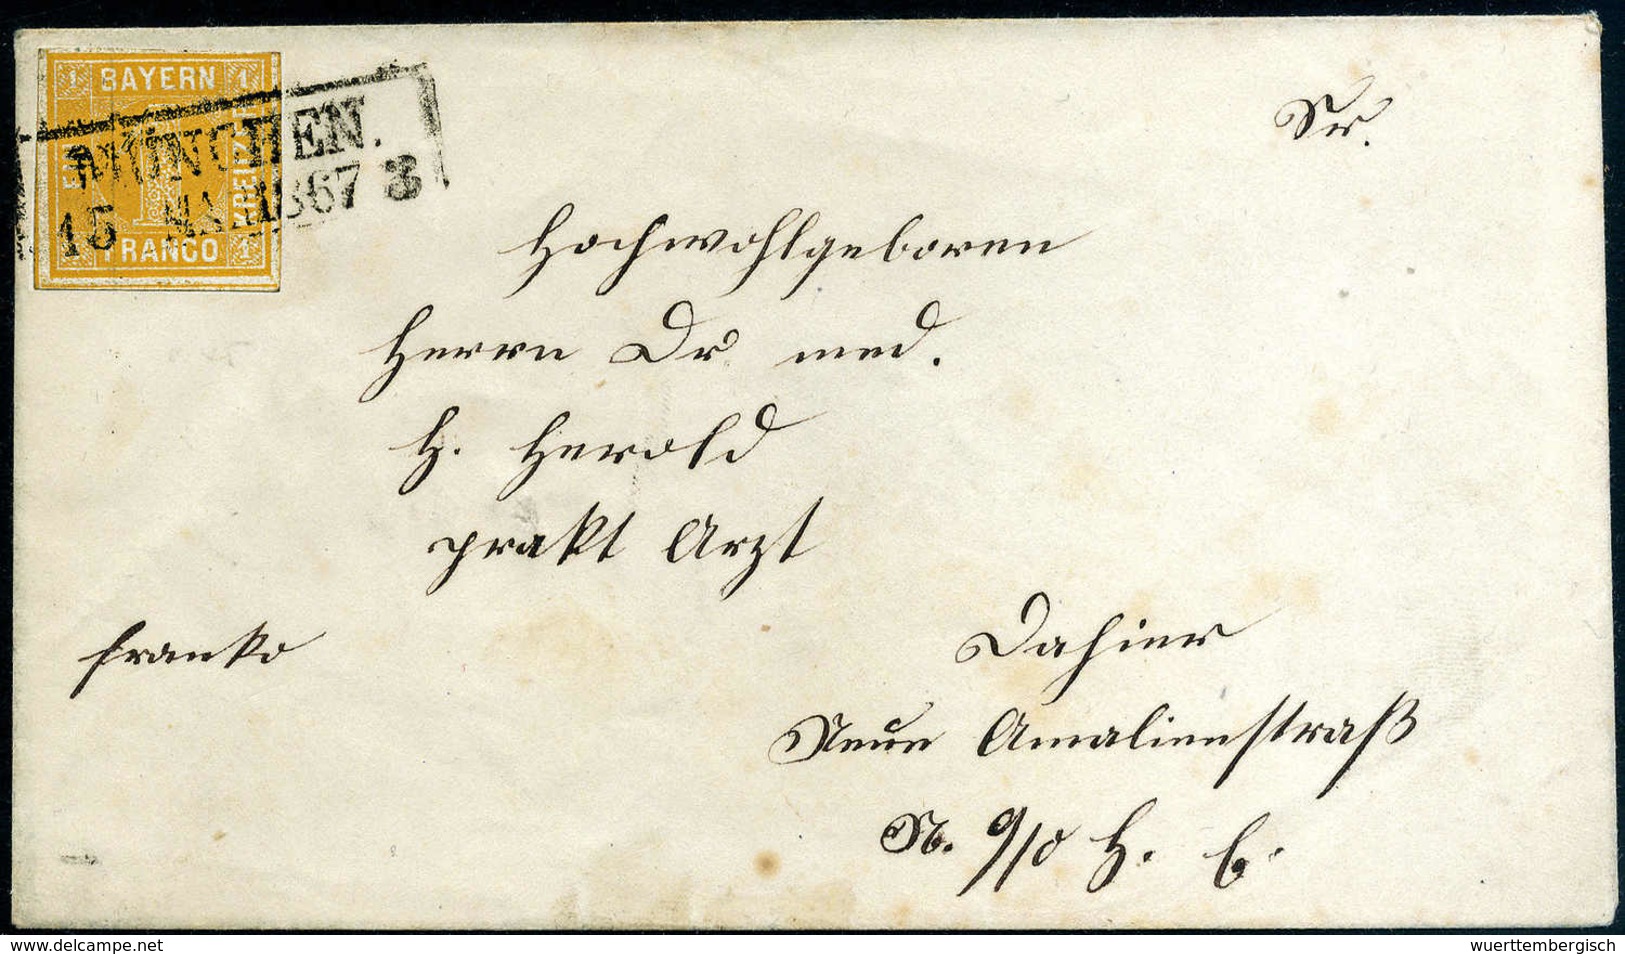 1 BAYERN 1
EIN
KREUZER
1
FRANCO 1
MÜNCHEN.
15 MAR 1867 3
Sr.
Hochwohlgeboren
Herrn Dr med.
H. Herold
prakt Arzt
franko
Dahier
Neue Amalienstraß
N. 9/0 H. b.
delcampe.net
wuerttembergisch